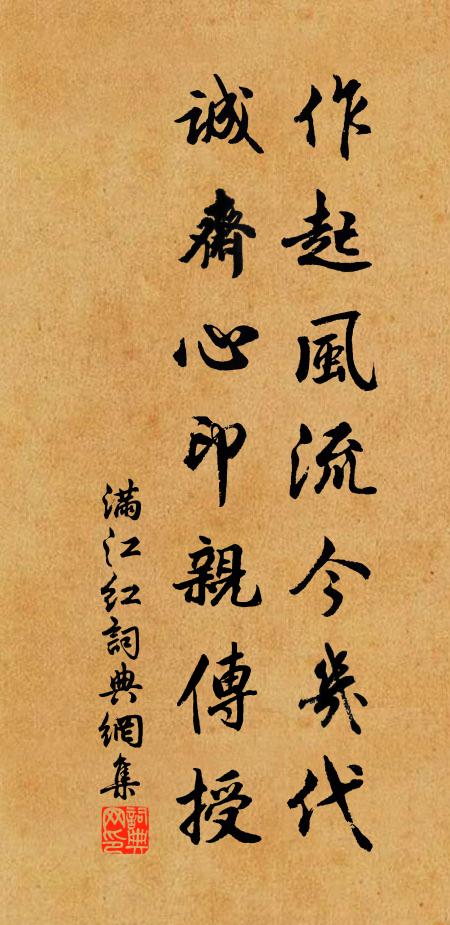 作起風流今幾代
誠齋心印親傳授
滿江红詞典網集
詞典网印